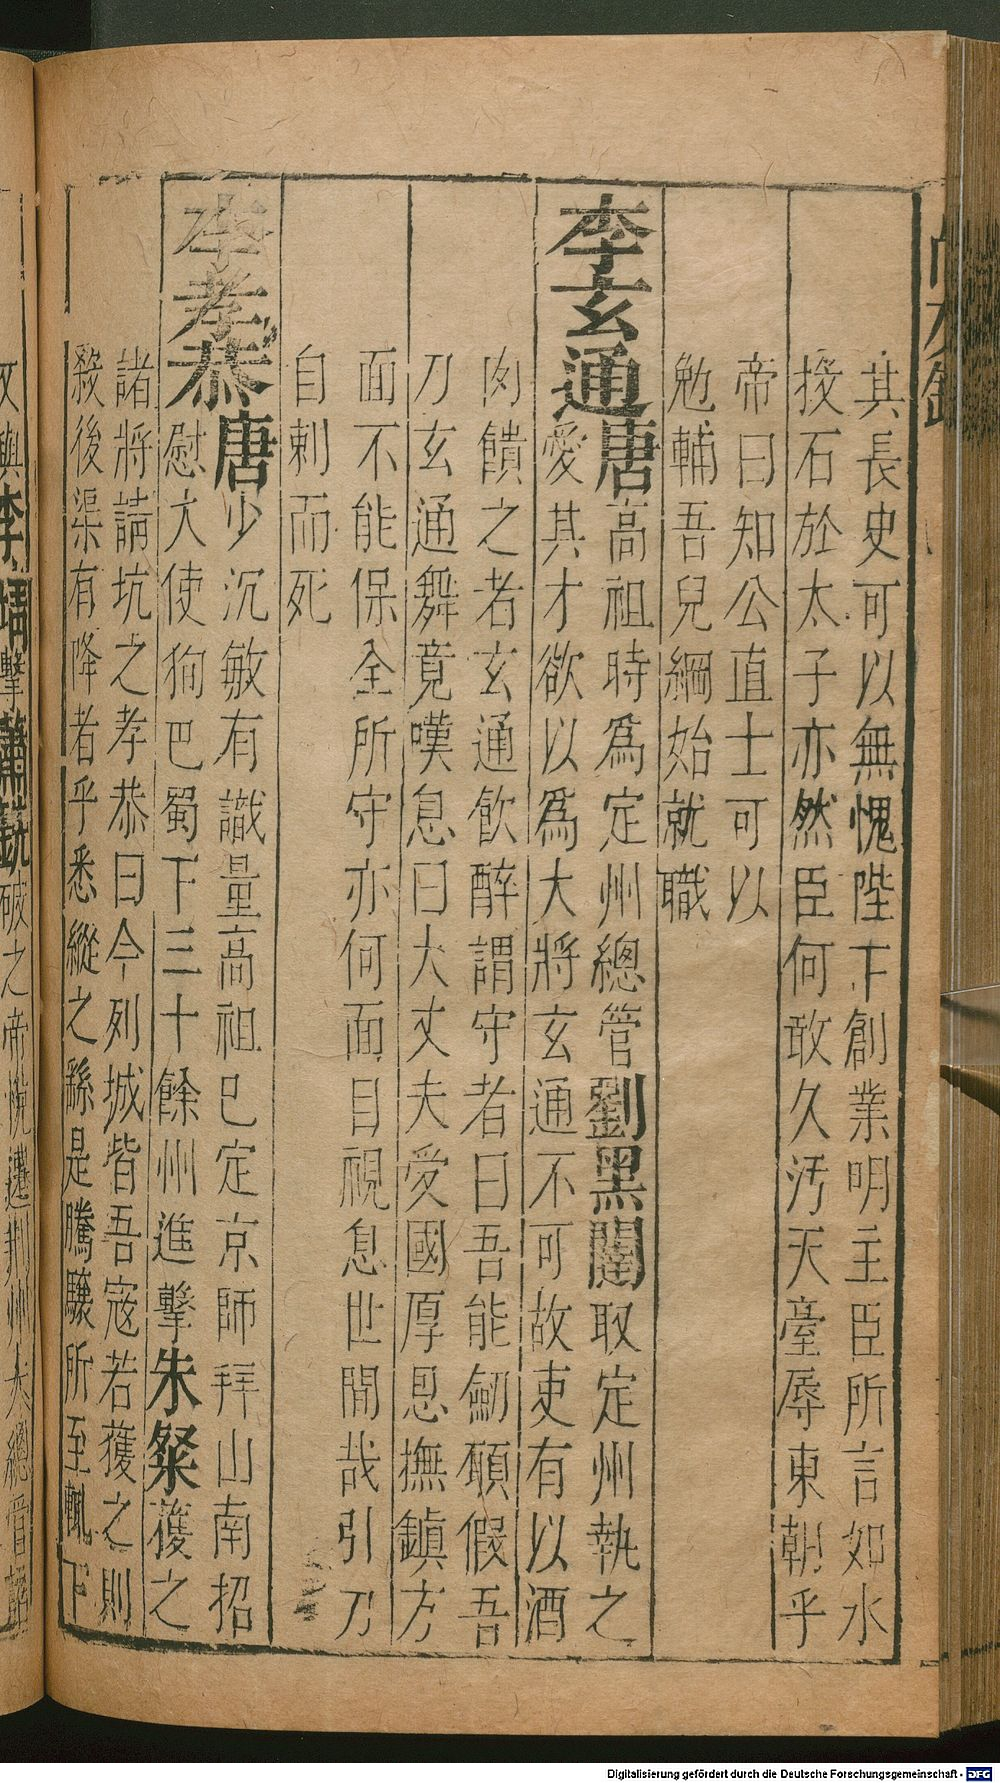 其長史可以無愧陛下創業明主臣所言如水
投石於太子亦然臣何敢久汚天臺辱東朝乎
帝曰知公直士可以
勉輔吾兒綱始就職
李玄通唐高祖時爲定州總管劉黑闥取定州執之
愛其才欲以爲大將玄通不可故吏有以酒
肉饋之者玄通飲醉謂守者曰吾能劒願假吾
刀玄通舞竟嘆息曰大丈夫愛國厚恩撫鎮方
面不能保全所守亦何面目視息世間哉引刀
自刺而死
李孝恭唐少沉敏有識量高祖已定京師拜山南招
慰大使狥巴蜀下三十餘州進擊朱粲獲之
諸將請坑之孝恭曰今列城皆吾寇若獲之則
殺後渠有降者乎悉縱之繇是騰驤所至輒下
又與李靖擊蕭銑破之帝悅遷荆州大總管詔
Digitalisierung gefördert durch die Deutsche Forschungsgemeinschaft - DFG